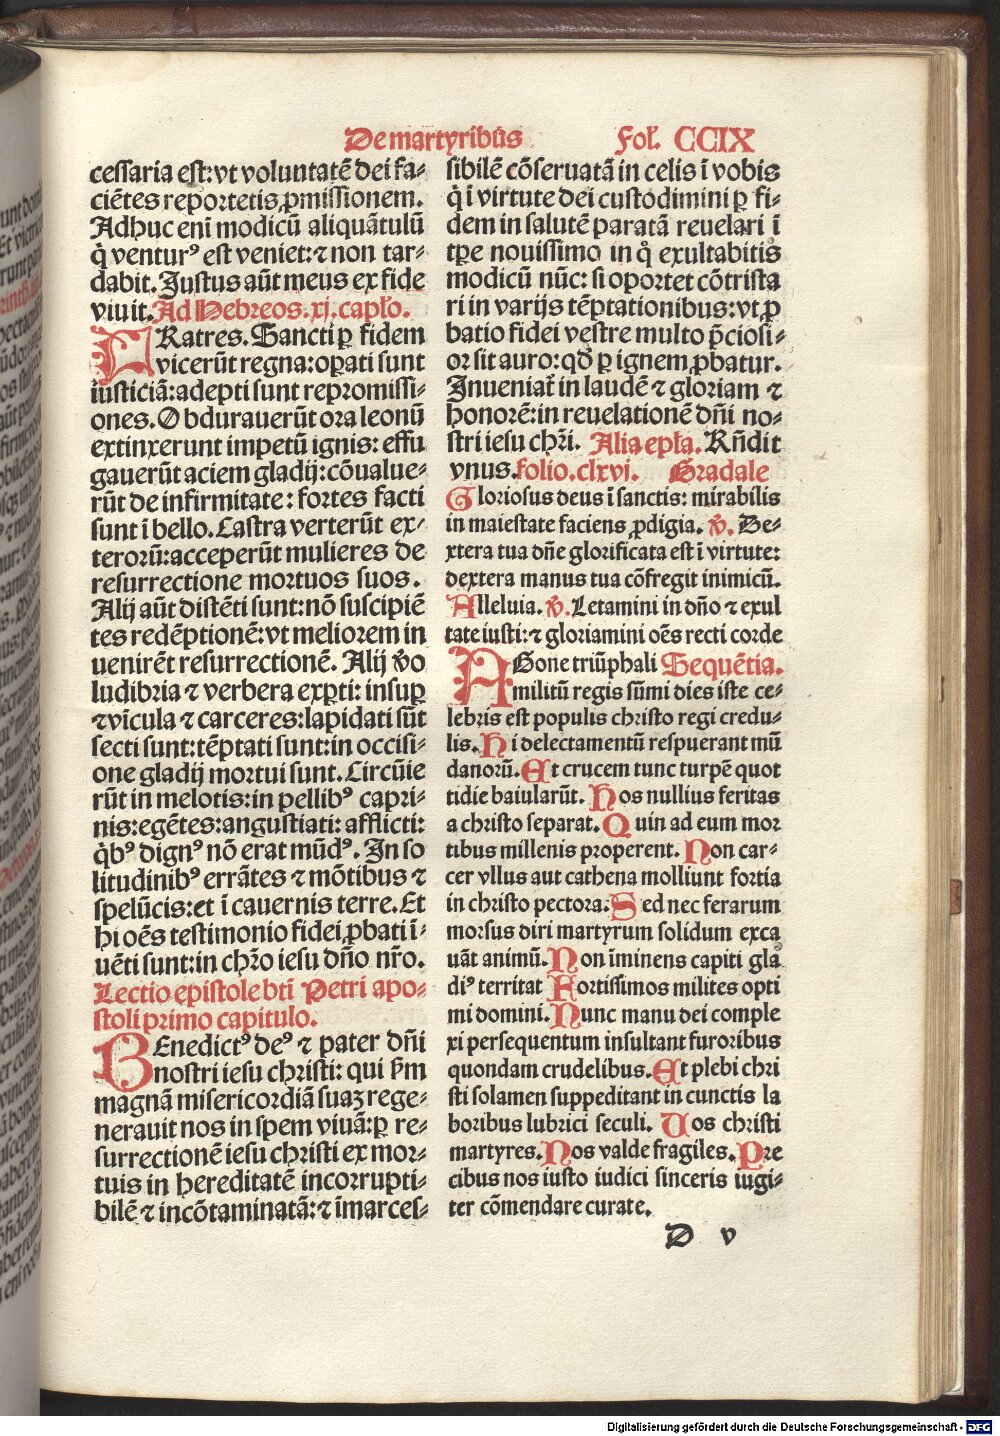 De martyribus Fol. CCIX
cessaria est: vt voluntatē dei fa-
ciētes reportetis ꝓmissionem.
Adhuc eni modicū aliquātulū
q̇ venturꝰ est veniet: ⁊ non tar-
dabit. Justus aūt meus ex fide
viuit. Ad Hebreos. xi. capło.
FRatres. Sancti ꝑ fidem
vicerūt regna: oꝑati sunt
iusticiā: adepti sunt repromissi-
ones. Obdurauerūt ora leonū
extinxerunt impetū ignis: effu
gauerūt aciem gladij: cōualue-
rūt de infirmitate: fortes facti
sunt ī bello. Castra verterūt ex-
terorū: acceperūt mulieres de
resurrectione mortuos suos.
Alij aūt distēti sunt: nō suscipiē
tes redēptionē: vt meliorem in
uenirēt resurrectionē. Alij v̄o
ludibria ⁊ verbera exꝑti: insuꝑ
⁊ vīcula ⁊ carceres: lapidati sūt
secti sunt: tēptati sunt: in occisi-
one gladij mortui sunt. Circūie
rūt in melotis: in pellibꝰ capri-
nis: egētes: angustiati: afflicti:
q̇bꝰ dignꝰ nō erat mūdꝰ. In so
litudinibꝰ errātes ⁊ mōtibus ⁊
spelūcis: et ī cauernis terre. Et
hi oēs testimonio fidei ꝓbati ī-
uēti sunt: in chr̄o iesu dn̄o nr̄o.
Lectio epistole bti̅ Petri apo-
stoli primo capitulo.
BEnedictꝰ deꝰ ⁊ pater dn̄i
nostri iesu christi: qui ẜm
magnā misericordiā suaꝫ rege-
nerauit nos in spem viuā: ꝑ re-
surrectionē iesu christi ex mor-
tuis in hereditatē incorrupti-
bilē ⁊ incōtaminatā: ⁊ īmarces-
sibilē cōseruatā in celis ī vobis
q̇ ī virtute dei custodimini ꝑ fi-
dem in salutē paratā reuelari ī
tp̄e nouissimo in q̊ exultabitis
modicū nūc: si oportet cōtrista
ri in varijs tēptationibus: vt ꝓ
batio fidei vestre multo p̄ciosi-
or sit auro: qd̄ ꝑ ignem ꝓbatur.
Inueniat̄ in laudē ⁊ gloriam ⁊
honorē: in reuelationē dn̄i no-
stri iesu chr̄i. Alia epła. Rn̄dit
vnus. folio. clxvi. Gradale
Gloriosus deus ī sanctis: mirabilis
in maiestate faciens ꝓdigia. ℣. De-
xtera tua dn̄e glorificata est ī virtute:
dextera manus tua cōfregit inimicū.
Alleluia. ℣. Letamini in dn̄o ⁊ exul
tate iusti: ⁊ gloriamini oēs recti corde
AGone triūphali Sequētia.
militū regis sūmi dies iste ce-
lebris est populis christo regi credu-
lis. Hi delectamentū respuerant mū
danorū. Et crucem tunc turpē quot
tidie baiularūt. Hos nullius feritas
a christo separat. Quin ad eum mor
tibus millenis properent. Non car-
cer vllus aut cathena molliunt fortia
in christo pectora. Sed nec ferarum
morsus diri martyrum solidum exca
uāt animū. Non īminens capiti gla
diꝰ territat Fortissimos milites opti
mi domini. Nunc manu dei comple
xi persequentum insultant furoribus
quondam crudelibus. Et plebi chri
sti solamen suppeditant in cunctis la
boribus lubrici seculi. Uos christi
martyres. Nos valde fragiles. Pre
cibus nos iusto iudici sinceris iugi-
ter cōmendare curate.
D v
Digitalisierung gefördert durch die Deutsche Forschungsgemeinschaft - DFG